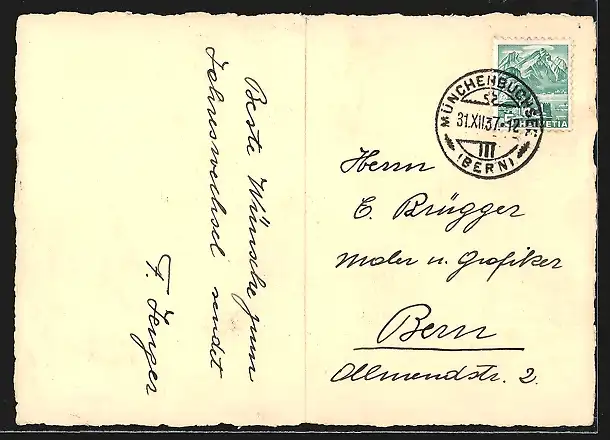 Beste Wünsche zum
Jahreswechsel sendet
F. Zenger
MÜNCHENBUCHSEE
31.XII.37.-12
(BERN)
HELVETIA
Herrn
E. Brügger
Maler u. Grafiker
Bern
Allmendstr. 2.